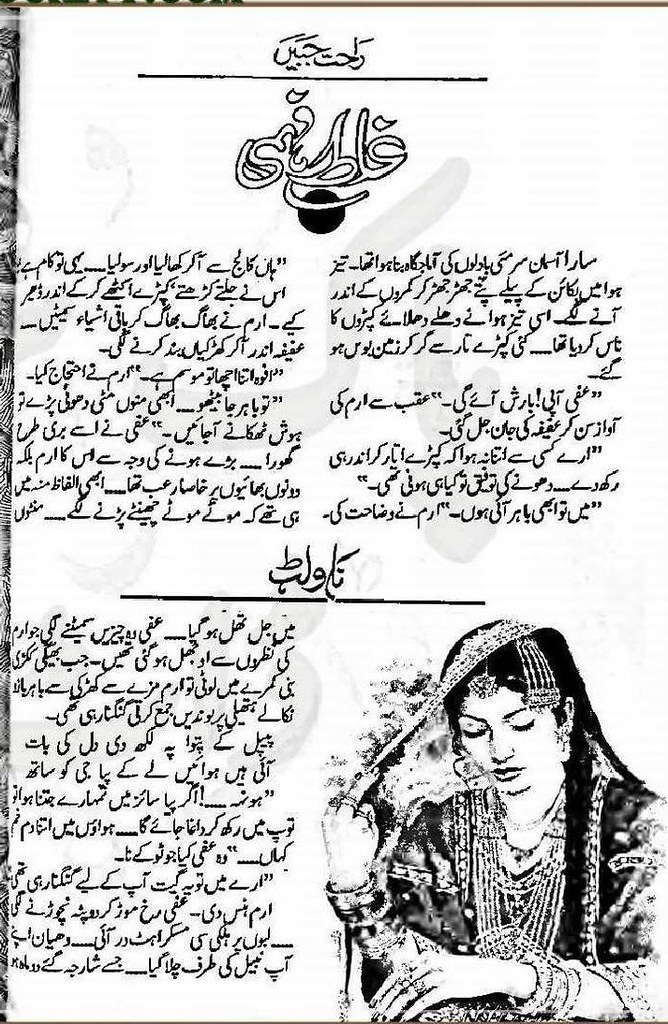 راحت جبیں
غلط فہمی
سارا آسمان سرمئی بادلوں کی آماجگاہ بنا ہوا تھا۔ تیز
ہوا میں بکائن کے پیلے پتے جھڑ جھڑ کر کمروں کے اندر
آنے لگے۔ اسی تیز ہوا نے دھلے دھلائے کپڑوں کا
ناس کر دیا تھا۔۔۔ کئی کپڑے تار سے گر کر زمین بوس ہو
گئے۔
”عفی آپی! بارش آئے گی۔“ عقب سے ارم کی
آواز سن کر عفیفہ کی جان جل گئی۔
”ارے کسی سے اتنا نہ ہوا کہ کپڑے اتار کر اندر ہی
رکھ دے۔۔۔ دھونے کی توفیق تو کیا ہی ہونی تھی۔“
”میں تو ابھی باہر آئی ہوں۔“ ارم نے وضاحت کی۔
”ہاں کالج سے آ کر کھا لیا اور سو لیا۔۔۔ یہی تو کام ہے
اس نے جلتے کڑھتے کپڑے اکٹھے کر کے اندر ڈھیر
کیے۔ ارم نے بھاگ بھاگ کر باقی اشیاء سمیٹیں۔۔۔
عفیفہ اندر آ کر کھڑکیاں بند کرنے لگی۔
”افوہ اتنا اچھا تو موسم ہے۔“ ارم نے احتجاج کیا۔
”تو باہر جا بیٹھو۔۔۔ ابھی منوں مٹی دھونی پڑے تو
ہوش ٹھکانے آ جائیں۔“ عفی نے اسے بری طرح
گھورا۔۔۔ بڑے ہونے کی وجہ سے اس کا ارم بلکہ
دونوں بھائیوں پر خاصا رعب تھا۔۔۔ ابھی الفاظ منہ میں
ہی تھے کہ موٹے موٹے چھینٹے پڑنے لگے۔۔۔ منٹوں
ناولٹ
میں جل تھل ہو گیا۔۔۔ عفی وہ چیزیں سمیٹنے لگی جو ارم
کی نظروں سے اوجھل ہو گئی تھیں۔ جب بھیگی ککڑی
بنی کمرے میں لوٹی تو ارم مزے سے کھڑکی سے باہر
نکالے ہتھیلی پر بوندیں جمع کرتی گنگنا رہی تھی۔
پیپل کے پتوا پہ لکھ دی دل کی بات
آئی ہیں ہوائیں لے کے پیا جی کو ساتھ
”ہونہہ۔۔۔! اگر پیا سائز میں تمہارے جتنا ہوا تو
توپ میں رکھ کر داغا جائے گا۔۔۔ ہواؤں میں اتنا دم خم
کہاں۔۔۔“ وہ عفی کیا جو ٹوکے نا۔
”ارے میں تو یہ گیت آپ کے لیے گنگنا رہی تھی
ارم ہنس دی۔ عفی رخ موڑ کر دوپٹہ نچوڑنے لگی
۔۔۔ لبوں پر ہلکی سی مسکراہٹ در آئی۔۔۔ دھیان اپنے
آپ نبیل کی طرف چلا گیا۔۔۔ جسے شارجہ گئے دو ماہ